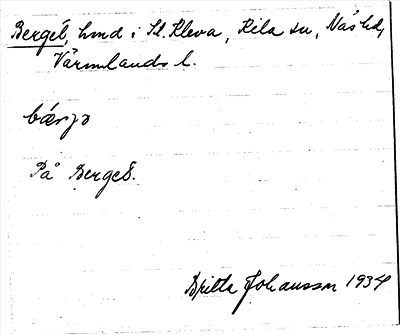 Berget, hmd i St. Kleva, Kila sn, Näs hd,
Värmlands l.
bærjə
På Berget.
Britta Johansson 1934